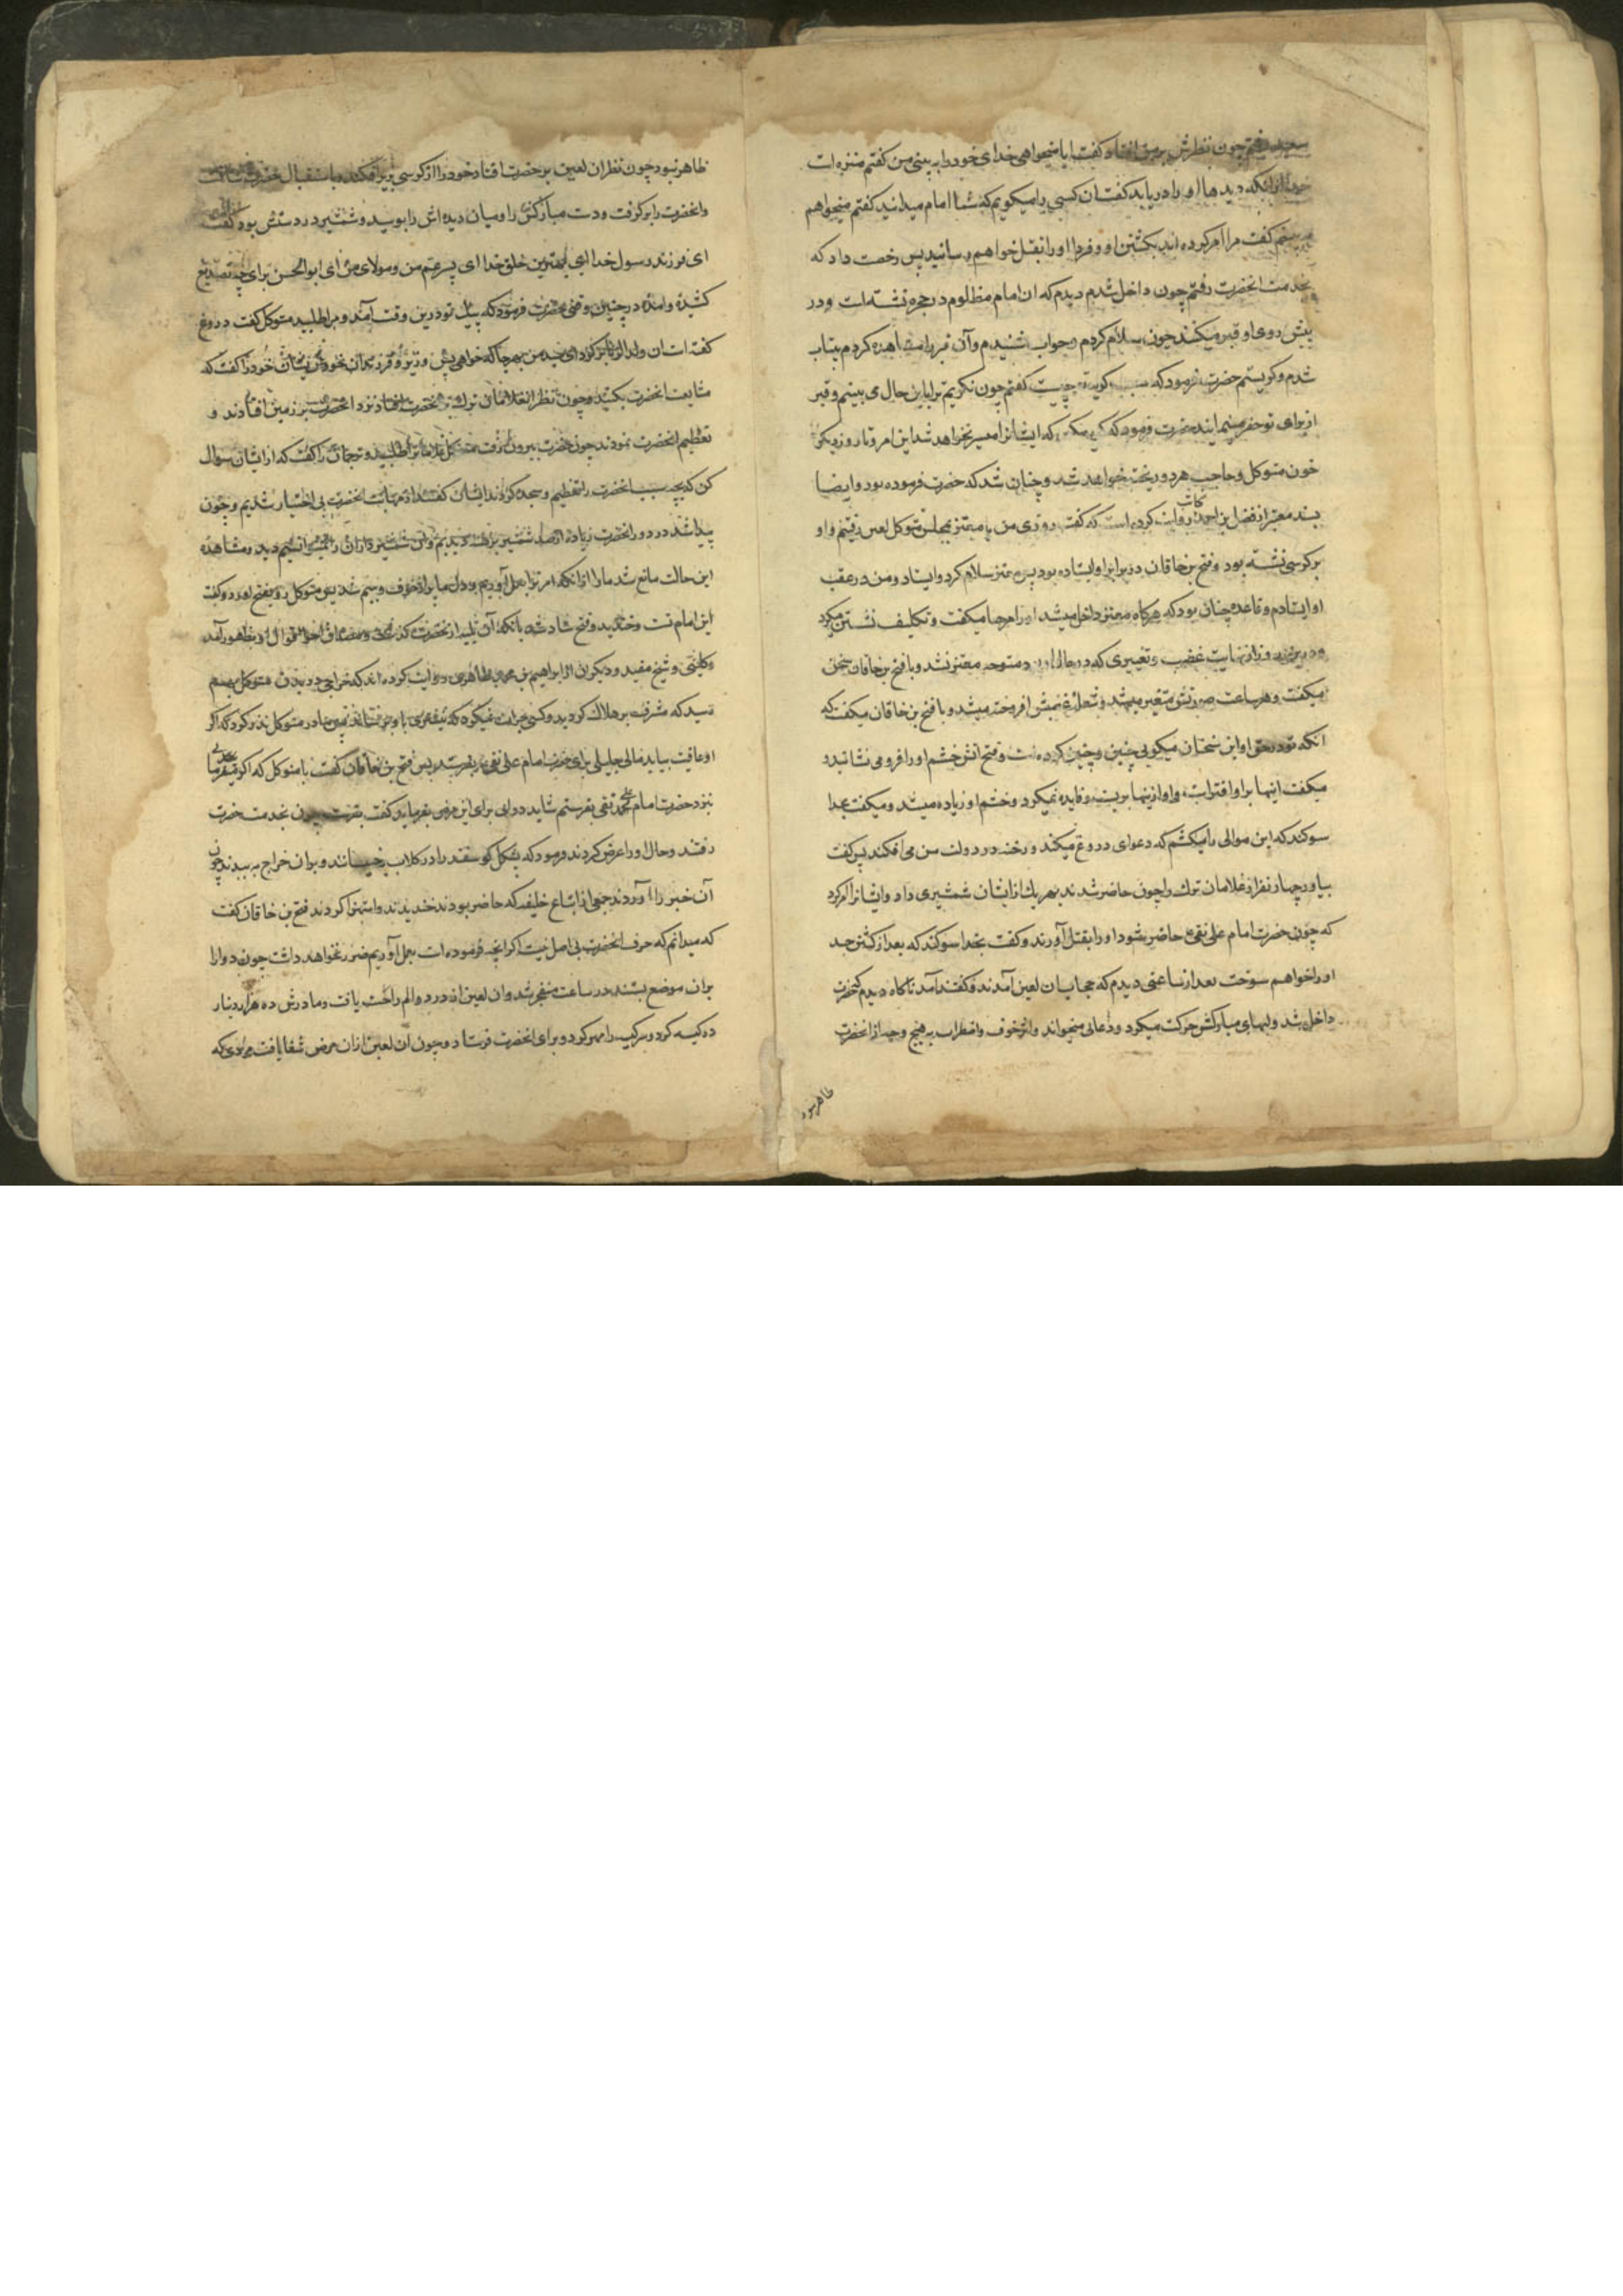 سعید رفتم چون نظرش بر من افتاد گفت ایا میخواهی خدای خود را به بینی من کفتم منزه است
خدا ازانکه دیدها او را دریابد کفت ان کسی را میکویم که شما امام میدانید کفتم میخواهم
به بینم کفت مرا امر کرده اند بکشتن او و فردا او را بقتل خواهم رسانید پس رخصت داد که
بخدمت انحضرت رفتم چون داخل شدم دیدم که ان امام مظلوم در حجره نشسته است و در
پیش روی او قبر میکنند چون سلام کردم و جواب شنیدم وآن قبر را مشاهده کردم بیتاب
شدم و کریستم حضرت فرمود که سبب کریه چیست کفتم چون نکریم ترا باین حال می بینم و قبر
از برای تو حفر مینمایند حضرت فرمود که کریه مکن که ایشانرا میسر نخواهد شد این امر و تا روز دیکر
خون متوکل و حاجب هر دو ریخته خواهد شد و چنان شد که حضرت فرموده بود و ایضا
بسند معتبر از فضل بن احمد کاتب روایت کرده است که کفت روزی من با معتز بمجلس متوکل لعین رفتیم و او
بر کرسی نشسته بود و فتح بن خاقان در برابر او ایستاده بود پس معتز سلام کرد و ایستاد و من در عقب
او ایستادم و قاعده چنان بود که هرکاه معتز داخل میشد او را مرحبا میکفت و تکلیف نشستن میکرد
در این روز از نهایت غضب و تغییری که در حال او بود متوجه معتز نشد و با فتح بن خاقان سخن
میکفت و هر ساعت صورتش متغیر میشد و شعله غضبش افروخته میشد و با فتح بن خاقان میکفت که
انکه تو در حق او این سخنان میکویی چنین و چنین کرده است و فتح اتش خشم او را فرو می نشانید و
میکفت اینها بر او افتراست و او ازینها بریست و فایده نمیکرد و خشم او زیاده میشد و میکفت بخدا
سوکند که این موالی را میکشم که دعوای دروغ میکند و رخنه در دولت من می افکند پس کفت
بیاور چهار نفر از غلامان ترک را چون حاضر شدند بهر یک از ایشان شمشیری داد و ایشانرا امر کرد
که چون حضرت امام علی نقی حاضر شود او را بقتل آورند و کفت بخدا سوکند که بعد از کشتن جسد
او را خواهم سوخت بعد از ساعتی دیدم که حجابان لعین آمدند و کفتند آمد ناکاه دیدم که حضرت
داخل شد و لبهای مبارکش حرکت میکرد و دعائی میخواند و اثر خوف و اضطراب بهیچ وجه از انحضرت
ظاهر نبود
ظاهر نبود چون نظر ان لعین بر حضرت افتاد خود را از کرسی بزیر افکند و باستقبال حضرت شتافت
و انحضرت را بر کرفت و دست مبارکش را و میان دیده اش را بوسید و شمشیر در دستش بود کفت
ای فرزند رسول خدا ای بهترین خلق خدا ای پسر عم من و مولای من ای ابوالحسن برای چه تصدیع
کشیده و امده در چنین وقتی حضرت فرمود که پیک تو درین وقت آمد و مرا طلبید متوکل کفت دروغ
کفته است ان ولد الزنا بر کرد ای سید من بهر جا که خواهی پس وزیر و فرزندان خود و خویشان خود را کفت که
مشایعت انحضرت بکنید و چون نظر انغلامان ترک بر انحضرت افتاد نزد انحضرت بر زمین افتادند و
تعظیم انحضرت نمودند چون حضرت بیرون رفت متوکل غلامانرا طلبید و ترجمان را کفت که از ایشان سوال
کن که بچه سبب انحضرت را تعظیم و سجده کردند ایشان کفتند از مهابت انحضرت بی اختیار شدیم و چون
پیدا شد در دور انحضرت زیاده از صد شمشیر برهنه دیدیم و ان شمشیر داران را نمیتوانستیم دید و مشاهده
این حالت مانع شد ما را از انکه امر ترا بعمل آوریم و دل ما پر از خوف و بیم شد پس متوکل رو بفتح اورد و کفت
این امام تست و خندید و فتح شاد شد بانکه آن بلیه از انحضرت کذشت
و کلینی و شیخ مفید و دیکران از ابراهیم بن محمد طاهری روایت کرده اند که خراجی در بدن متوکل بهم
رسید که مشرف بر هلاک کردید و کسی جرات نمیکرد که نیشتری باو برساند پس مادر متوکل نذر کرد که اکر
او عافیت بیابد مالی جلیلی برای حضرت امام علی نقی بفرستد پس فتح بن خاقان کفت با متوکل که اکر میفرمایی
بنزد حضرت امام علی نقی بفرستم شاید دوایی برای این مرض بفرماید کفت بفرست چون بخدمت حضرت
رفتند و حال او را عرض کردند فرمود که پشکل کوسفند را در کلاب بخیسانند و بران خراج به بندند چون
آن خبر را آوردند جمعی از اتباع خلیفه که حاضر بودند خندیدند و استهزا کردند فتح بن خاقان کفت
که میدانم که حرف انحضرت بی اصل نیست اکر انچه فرموده است بعمل آوریم ضرر نخواهد داشت چون دوا را
بران موضع بستند در ساعت منفجر شد و ان لعین از درد و الم راحت یافت و مادرش ده هزار دینار
در کیسه کرد و سر کیسه را مهر کرد و برای انحضرت فرستاد و چون ان لعین ازان مرض شفا یافت مردی که